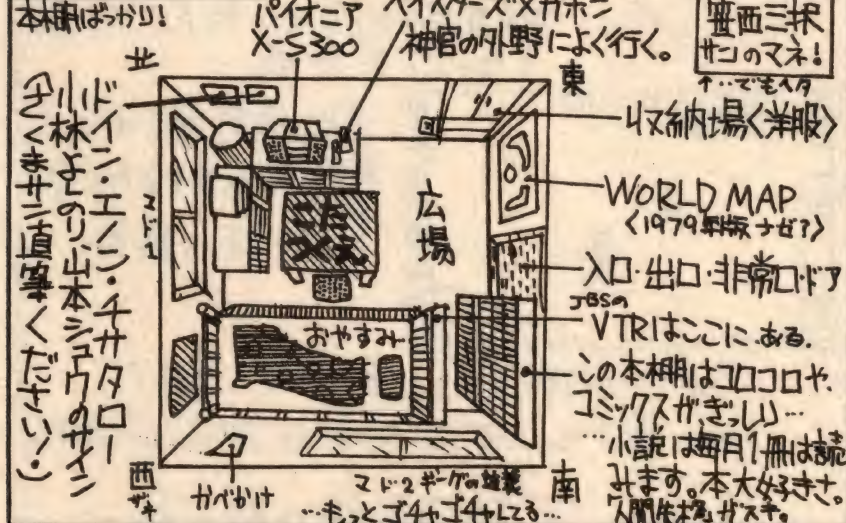 本棚ばっかり!
パイオニア
X-S300
ベイスターズメガホン
神宮の外野によく行く。
笹西三択
サンのマネ!
↑…でもヘタ
北
東
ドイン・エノン・チサタロー
小林よしのり、山本シュウのサイン
(さくまサン直筆ください!)
マド1
こたつ
広場
収納場〈洋服〉
WORLD MAP
〈1979年版 ナゼ?〉
入口・出口・非常口・ドア
JBSの
VTRはここにある。
おやすみ
この本棚はコロコロや、
コミックスが、ぎっしり…
…小説は毎月1冊は読
みます。本大好きさ。
人間失格がスキ。
西
ザキ
かべかけ
マド2
南
…もっとゴチャゴチャしてる…